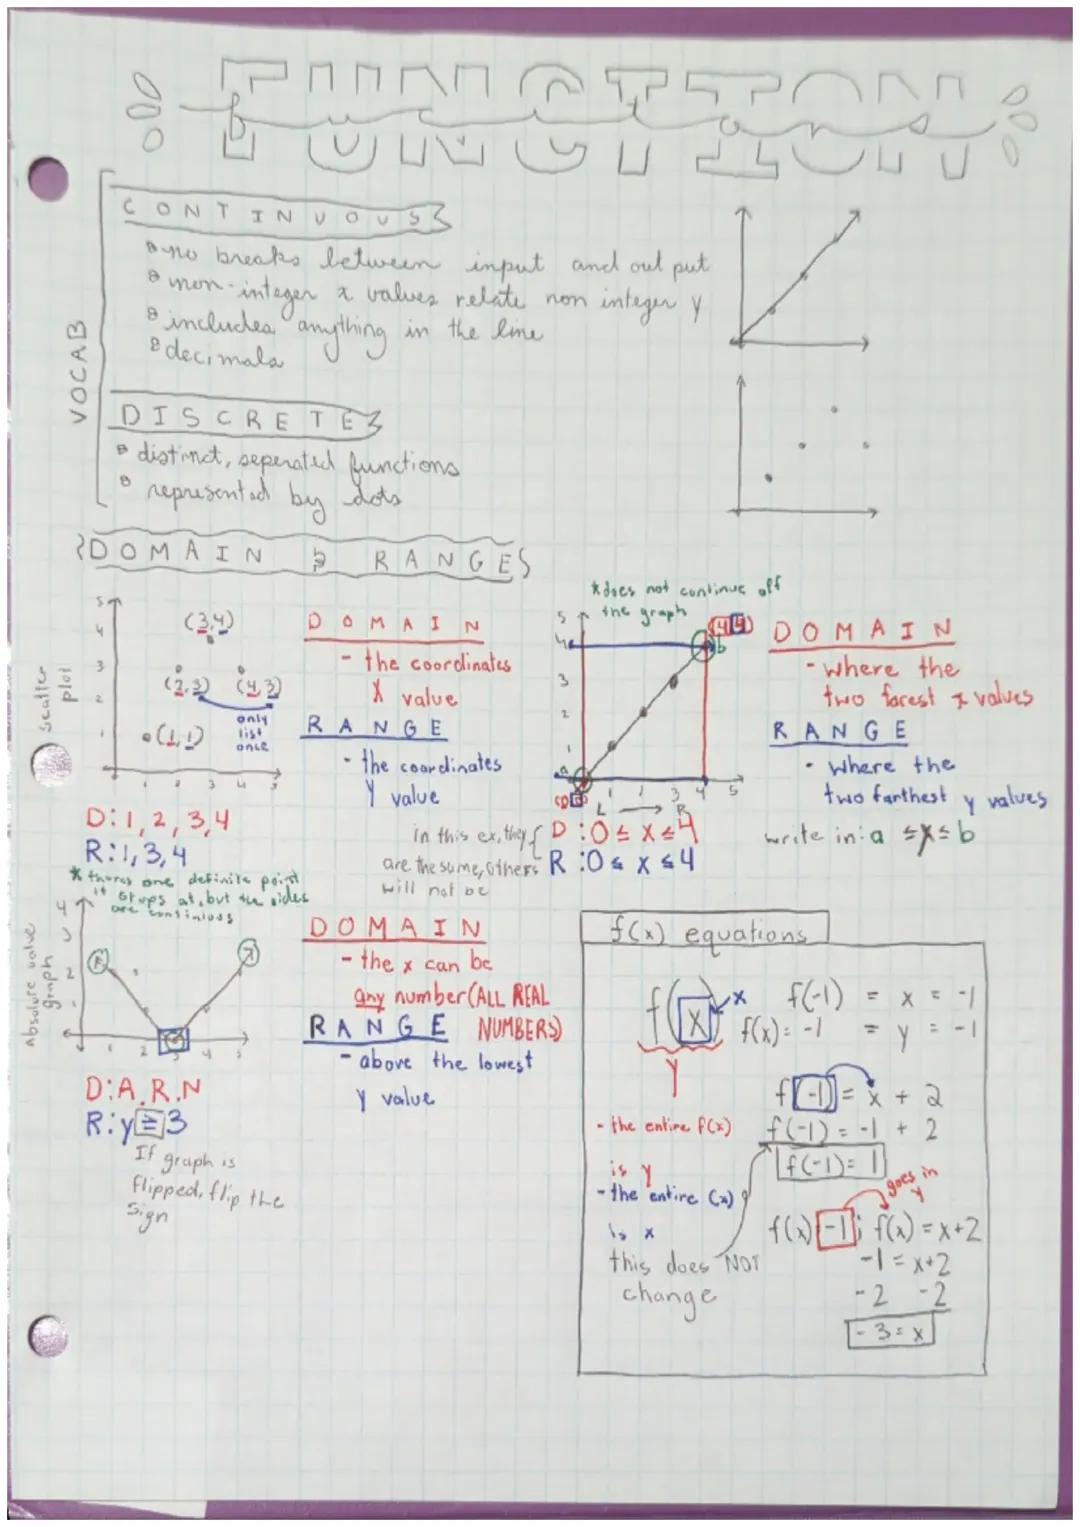 FUNCTION
VOCAB
CONTINUOUS
no breaks between input and out put
non-integer x values relate non integer y
includes anything in the line
decimals
DISCRETE
distinct, seperated functions
represented by dots
DOMAIN & RANGES
scatter plot
5
4
3
2
1
(3,4)
(2,3) (4,3)
only list once
(1,1)
1 2 3 4 5
D: 1, 2, 3, 4
R: 1, 3, 4
DOMAIN
- the coordinates
X value
RANGE
- the coordinates
Y value
*does not continue off
the graph
5
4
3
2
1
a
b
3 4 5
L → R
in this ex, they
are the same, others
will not be
D: 0 ≤ x ≤ 4
R: 0 ≤ x ≤ 4
DOMAIN
- where the
two farest x values
RANGE
- where the
two farthest y values
write in: a ≤ x ≤ b
* theres one definite point
it stops at, but the sides
are continuos
Absolute value
graph
4
3
2
1
1 2 3 4 5
D: A.R.N
R: y ≥ 3
If graph is
flipped, flip the
sign
DOMAIN
- the x can be
any number (ALL REAL
NUMBERS)
RANGE
- above the lowest
y value
f(x) equations
f(x)
x
y
f(-1) = x = -1
f(x) = -1 = y = -1
- the entire f(x)
is y
- the entire (x)
is x
this does NOT
change
f(-1) = x + 2
f(-1) = -1 + 2
f(-1) = 1
goes in
y
f(x) = -1; f(x) = x+2
-1 = x+2
-2 -2
-3 = x